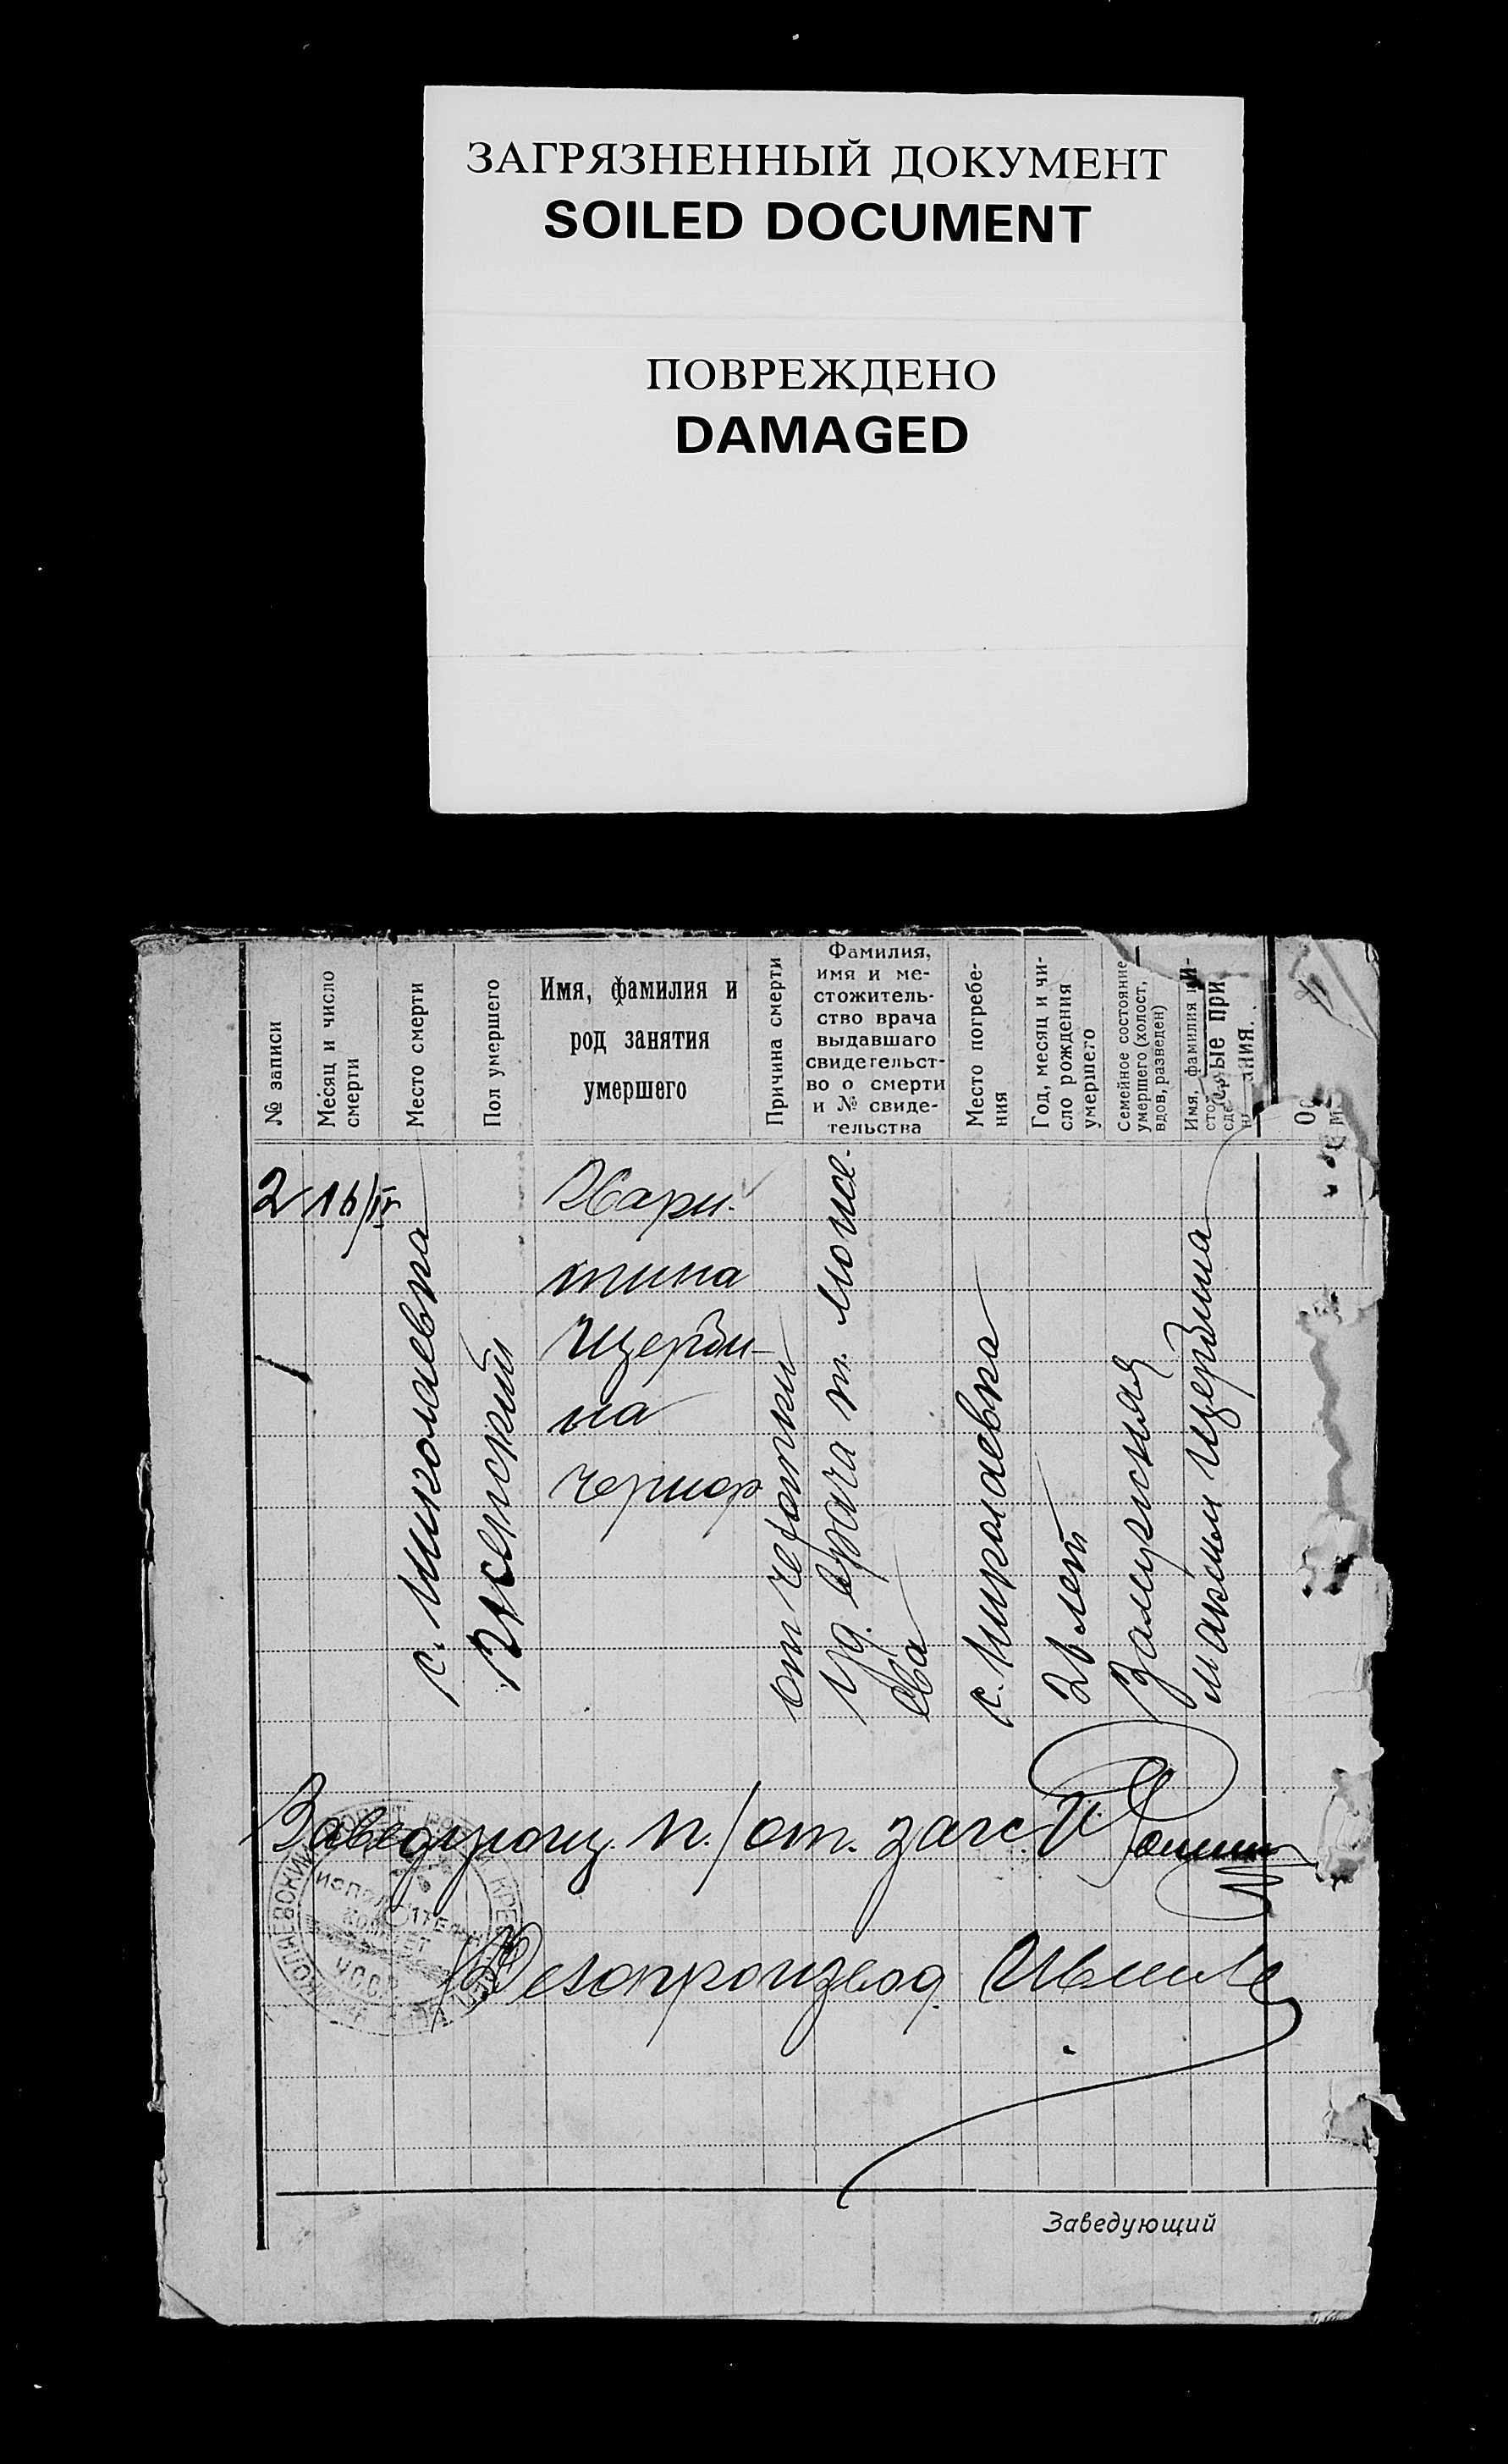 ЗАГРЯЗНЕННЫЙ ДОКУМЕНТ
SOILED DOCUMENT
ПОВРЕЖДЕНО
DAMAGED
№ записи
Месяц и число
смерти
Место смерти
Пол умершего
Имя, фамилия и
род занятия
умершего
Причина смерти
Фамилия,
имя и ме-
стожитель-
ство врача
выдавшаго
свидетельст-
во о смерти
и № свиде-
тельства
Место погребе-
ния
Год, месяц и чи-
сло рождения
умершего
Семейное состояние
умершего (холост,
вдов, разведен)
Имя, фамилия и
2
16/IV
с. Николаевка
Женский
Хари-
тина
Щерби-
на
чернор
от чехотки
Уд. врача т. Моисе-
ева
с. Николаевка
26 лет
Замужняя
Максим Щербина
Заведующ. п/от. загс
Делопроизвод.
ИСПОЛНИТЕЛЬН
КОМИТЕТ
УССР
Заведующий